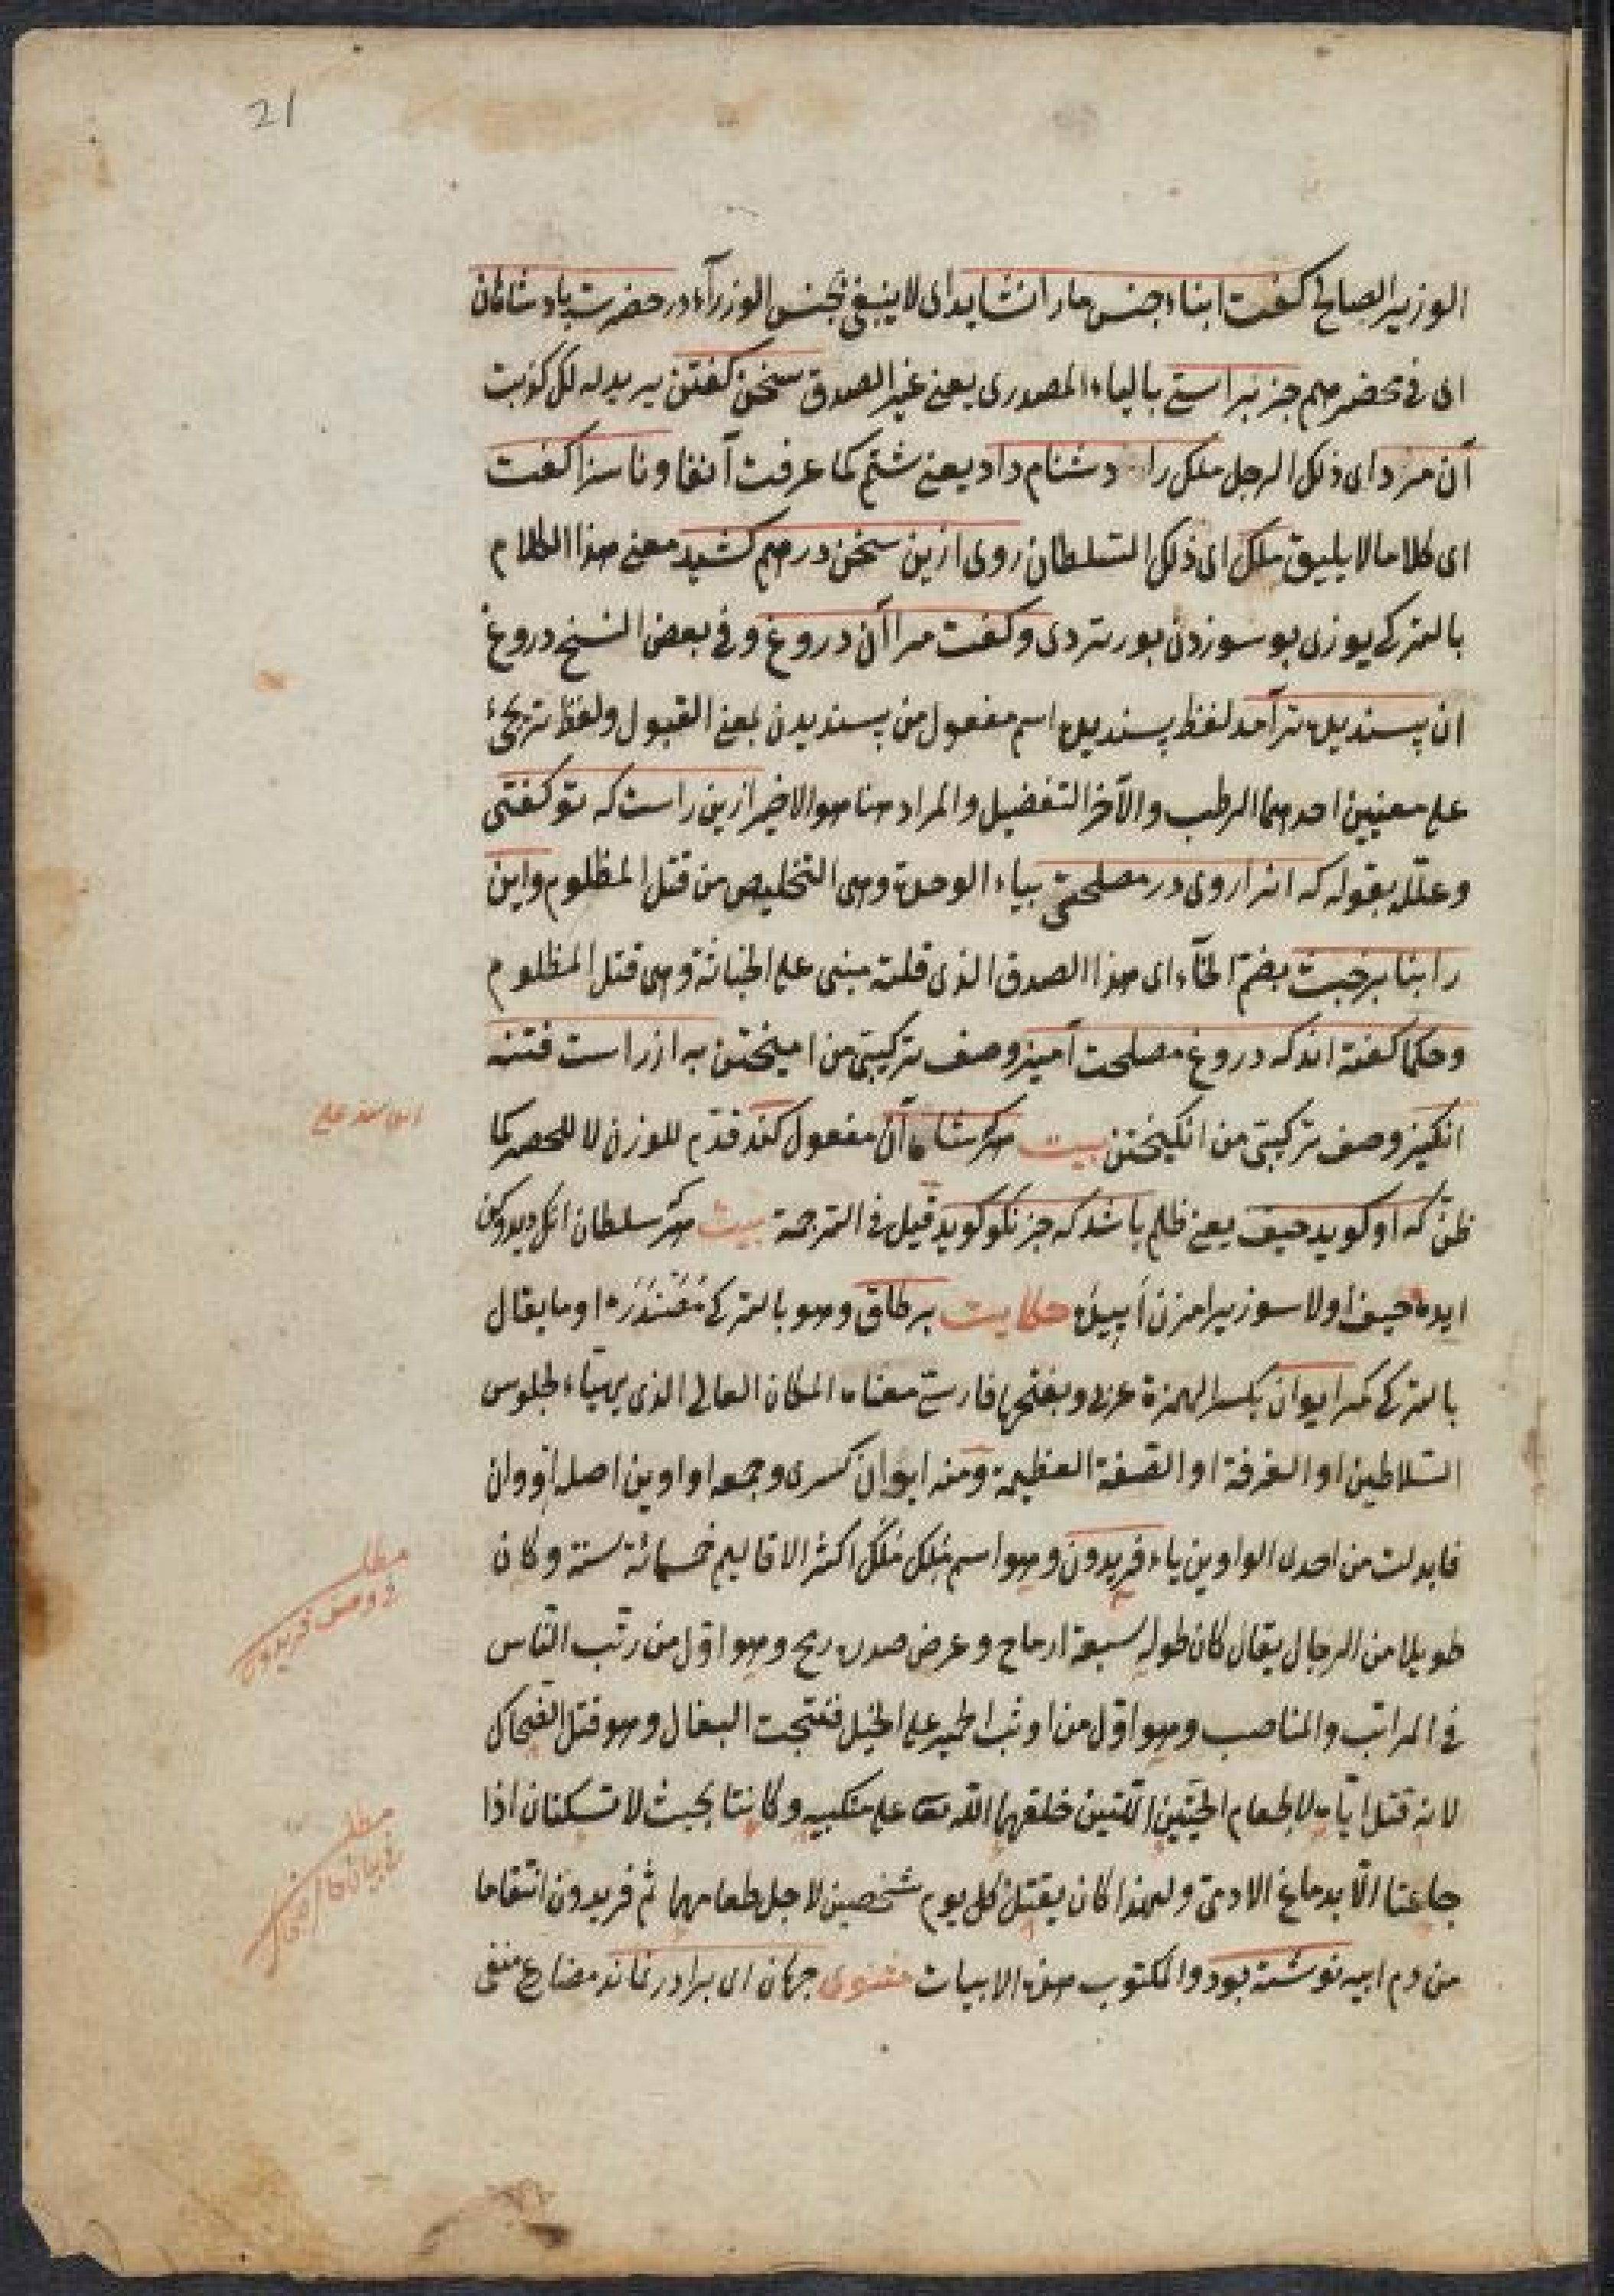 21
الوزير الصالح كفت ابناء جنس مارا نشايد اى لا ينبغى لجنس الوزرآء در حضرت پادشاهان
اى فى محضرهم جز براستى بالياء المصدرى يعنى غير الصدق سخن كفتن يريد به لكونت
آن مرد اى ذلك الرجل ملك را دشنام داد يعنى شتم كما عرفت آنفا و ناسزا كفت
اى كلاما لا يليق ملك اى ذلك السلطان روى ازين سخن درهم كشيد معنى هذا الكلام
بالتركى يوزى بو سوزدن بورتردى و كفت مرا آن دروغ و فى بعض النسخ دروغ
ان پسنديده تر آمد لفظ پسنديده اسم مفعول من پسنديدن بمعنى القبول ولفظ تر يجئ
على معنيين احدهما الرطب والآخر التفضيل والمراد هنا هو الاخير ازين راست كه تو كفتى
وعلله بقوله كه انرا روى در مصلحتى بياء الوحدة وهى التخليص من قتل المظلوم و اين
را بنا بر خبث بضم الخآء اى هذا الصدق الذى قلته مبنى على الخباثة وهى قتل المظلوم
و حكما كفته اند كه دروغ مصلحت آميز وصف تركيبى من اميختن به از راست فتنه
انكيز وصف تركيبى من انكيختن بيت هركه شاه آن مفعول كند قدم للوزن لا للحصر كما
ظن كه او كويد حيف يعنى ظلم باشد كه جز نكو كويد قيل فى الترجمة بيت هر كه سلطان انك ديدوكن
ايده حيف اولا سوزيرامزن اييله حكايت بر طاق وهو بالتركى مفتندره او ما يقال
بالتركى كمر ايوان بكسر الهمزة عربى وبفتحها فارسى معناه المكان العالى الذى يهياء لجلوس
السلاطين او الغرفة او الصفة العظيمة ومنه ايوان كسرى وجمعه اواوين اصله اووان
فابدلت من احدى الواوين ياء فريدون وهو اسم ملك ملك اكثر الاقاليم خمسمائة سنة وكان
طويلا من الرجال يقال كان طوله سبعة ارماح وعرض صدره رمح وهو اول من رتب الناس
فى المراتب والمناصب وهو اول من اوثب الحمير على الخيل فنتجت البغال وهو قتل الضحاك
لانه قتل اباه لاطعام الحيتين اللتين خلقهما الله تعه على منكبيه وكانتا بحيث لا تسكنان اذا
جاعتا الا بدماغ الادمى ولهذا كان يقتل كل يوم شخصين لاجل طعامهما ثم فريدون انتقاما
من دم ابيه نوشته بود والمكتوب هذه الابيات مثنوى جهان اى برادر نماند مضارع منفى
مطلب
فى وصف فريدون
مطلب